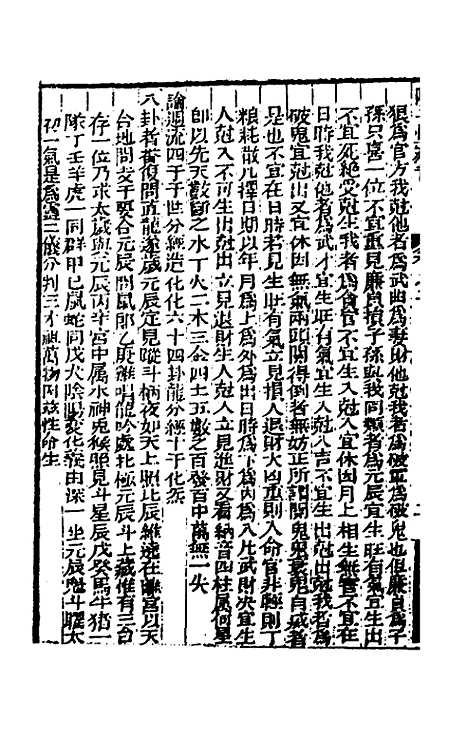 狠為官方我尅他者為武曲為妻財他尅我者為破軍為破鬼也但廉貞為子
孫只喜一位不宜重見廉貞損子孫與我同類者為元辰宜生旺有氣宜生出
不宜死絶受尅生我者為貪官不宜生入尅入宜休囚月上相生無害不宜在
日時我尅他者為武才宜生旺有氣宜生入尅入吉不宜生出尅出尅我者為
破鬼宜尅出又宜休囚無氣兩頭關得倒者無妨正所謂關鬼鬼裏鬼自戒者
是也不宜在日時若見生旺有氣立見損人退財大凶重則入命官非輕則丁
粮耗散凡擇日期以年月為上為外為出日時為下為內為入凡武財決宜生
入尅入不可生出尅出立見退財生入尅入立見進財又看納音四柱屬何星
即以先天數斷之水一火二木三金四土五數之百發百中萬無一失
論週流四于于世分經造化化六十四卦龍分經十于化炁
八卦者奮復問直龍遂歲元辰定見蹤斗柄夜如天上照比辰維遠在離宮以天
台地問支干要合元辰問鼠郎乙庚雞唱龍吟處北極元辰斗上藏惟有三台
存一位乃求太歲與元辰丙辛宮中属水神兎猴照見斗星辰戊癸馬牛猪一
隊丁壬羊虎一同群甲巳鼠蛇同戊火陰陽変化養由深一坐元辰鬼斗曜太
初一氣是為靈二儀分判三才祖萬物同兹性命生